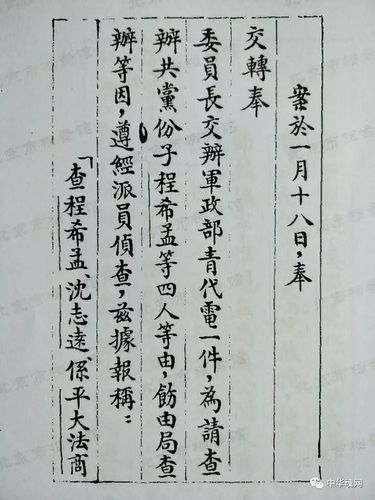 案於一月十八日，奉
交轉奉
委員長交辦軍政部青代電一件，為請查
辦共黨份子程希孟等四人等由，飭由局查
辦等因，遵經派員偵查，茲據報稱：
「查程希孟、沈志遠、係平大法商
中华魂网